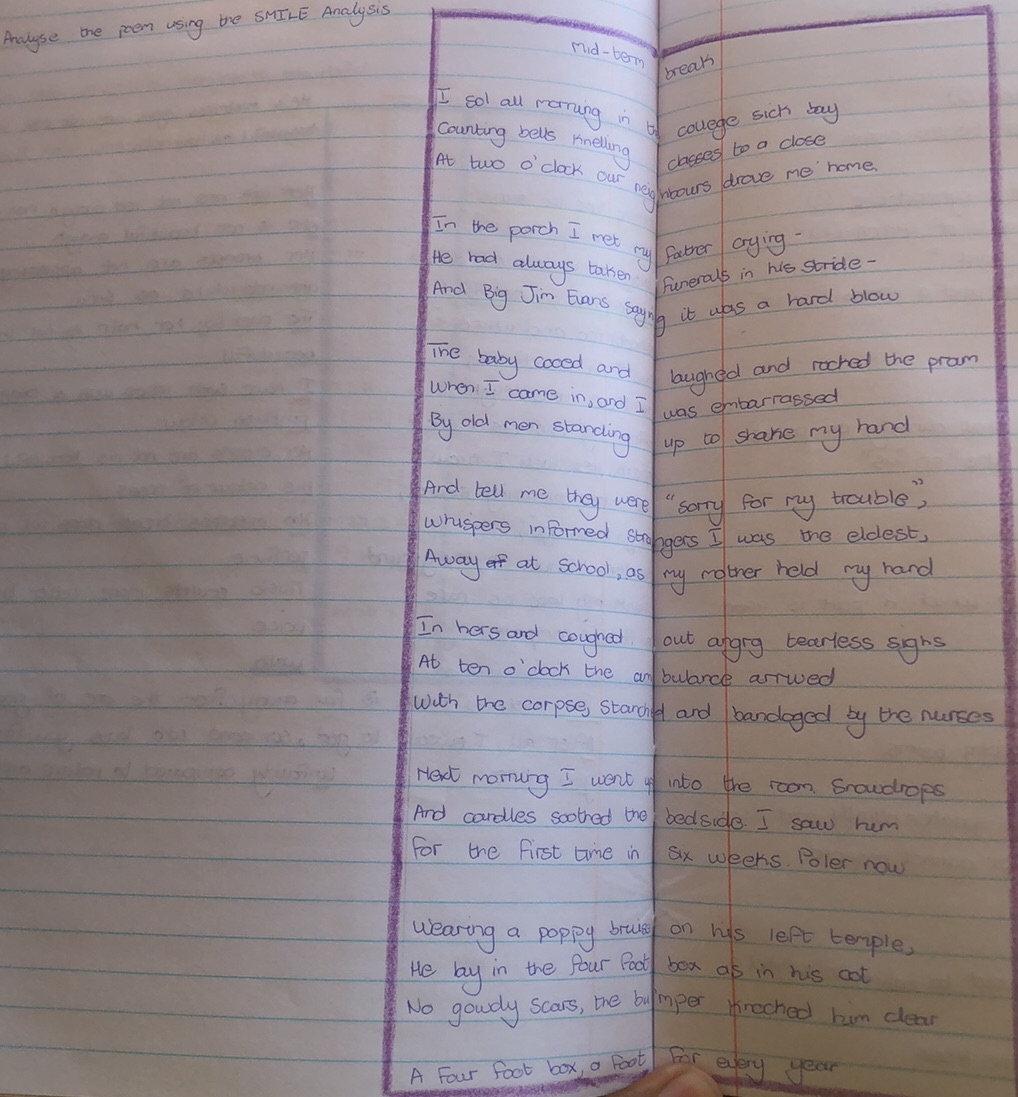 Analyse the poem using the SMILE Analysis
Mid-term break
I sat all morning in the college sick bay
Counting bells knelling classes to a close
At two o'clock our neighbours drove me home.
In the porch I met my father crying -
He had always taken funerals in his stride -
And Big Jim Evans saying it was a hard blow
The baby cooed and laughed and rocked the pram
When I came in, and I was embarrassed
By old men standing up to shake my hand
And tell me they were "sorry for my trouble",
Whispers informed strangers I was the eldest,
Away at school, as my mother held my hand
In hers and coughed out angry tearless sighs
At ten o'clock the ambulance arrived
With the corpse, stanched and bandaged by the nurses
Next morning I went up into the room. Snowdrops
And candles soothed the bedside. I saw him
For the first time in six weeks. Paler now
Wearing a poppy bruise on his left temple,
He lay in the four foot box as in his cot
No gawdy scars, the bumper knocked him clear
A four foot box, a foot for every year